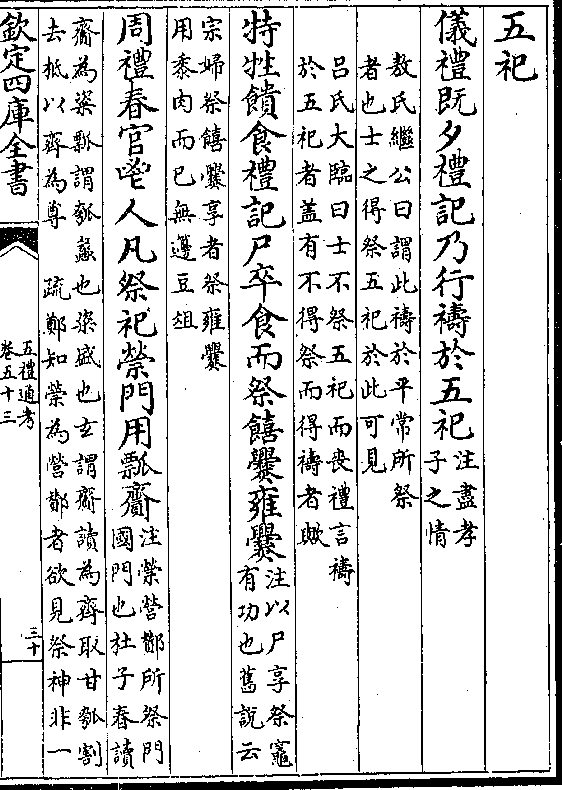 五祀
儀禮既夕禮記乃行禱於五祀注盡孝
子之情
敖氏繼公曰謂此禱於平常所祭
者也士之得祭五祀於此可見
呂氏大臨曰士不祭五祀而喪禮言禱
於五祀者蓋有不得祭而得禱者歟
特牲饋食禮記尸卒食而祭饎爨雍爨注以尸享祭竈
有功也舊說云
宗婦祭饎爨享者祭雍爨
用黍肉而已無籩豆俎
周禮春官鬯人凡祭祀禜門用瓢齎注禜營酇所祭門
國門也杜子春讀
齎為粢瓢謂瓠蠡也粢盛也玄謂齎讀為齊取甘瓠割
去柢以齊為尊 疏鄭知禜為營酇者欲見祭神非一
欽定四庫全書
五禮通考
卷五十三
三十